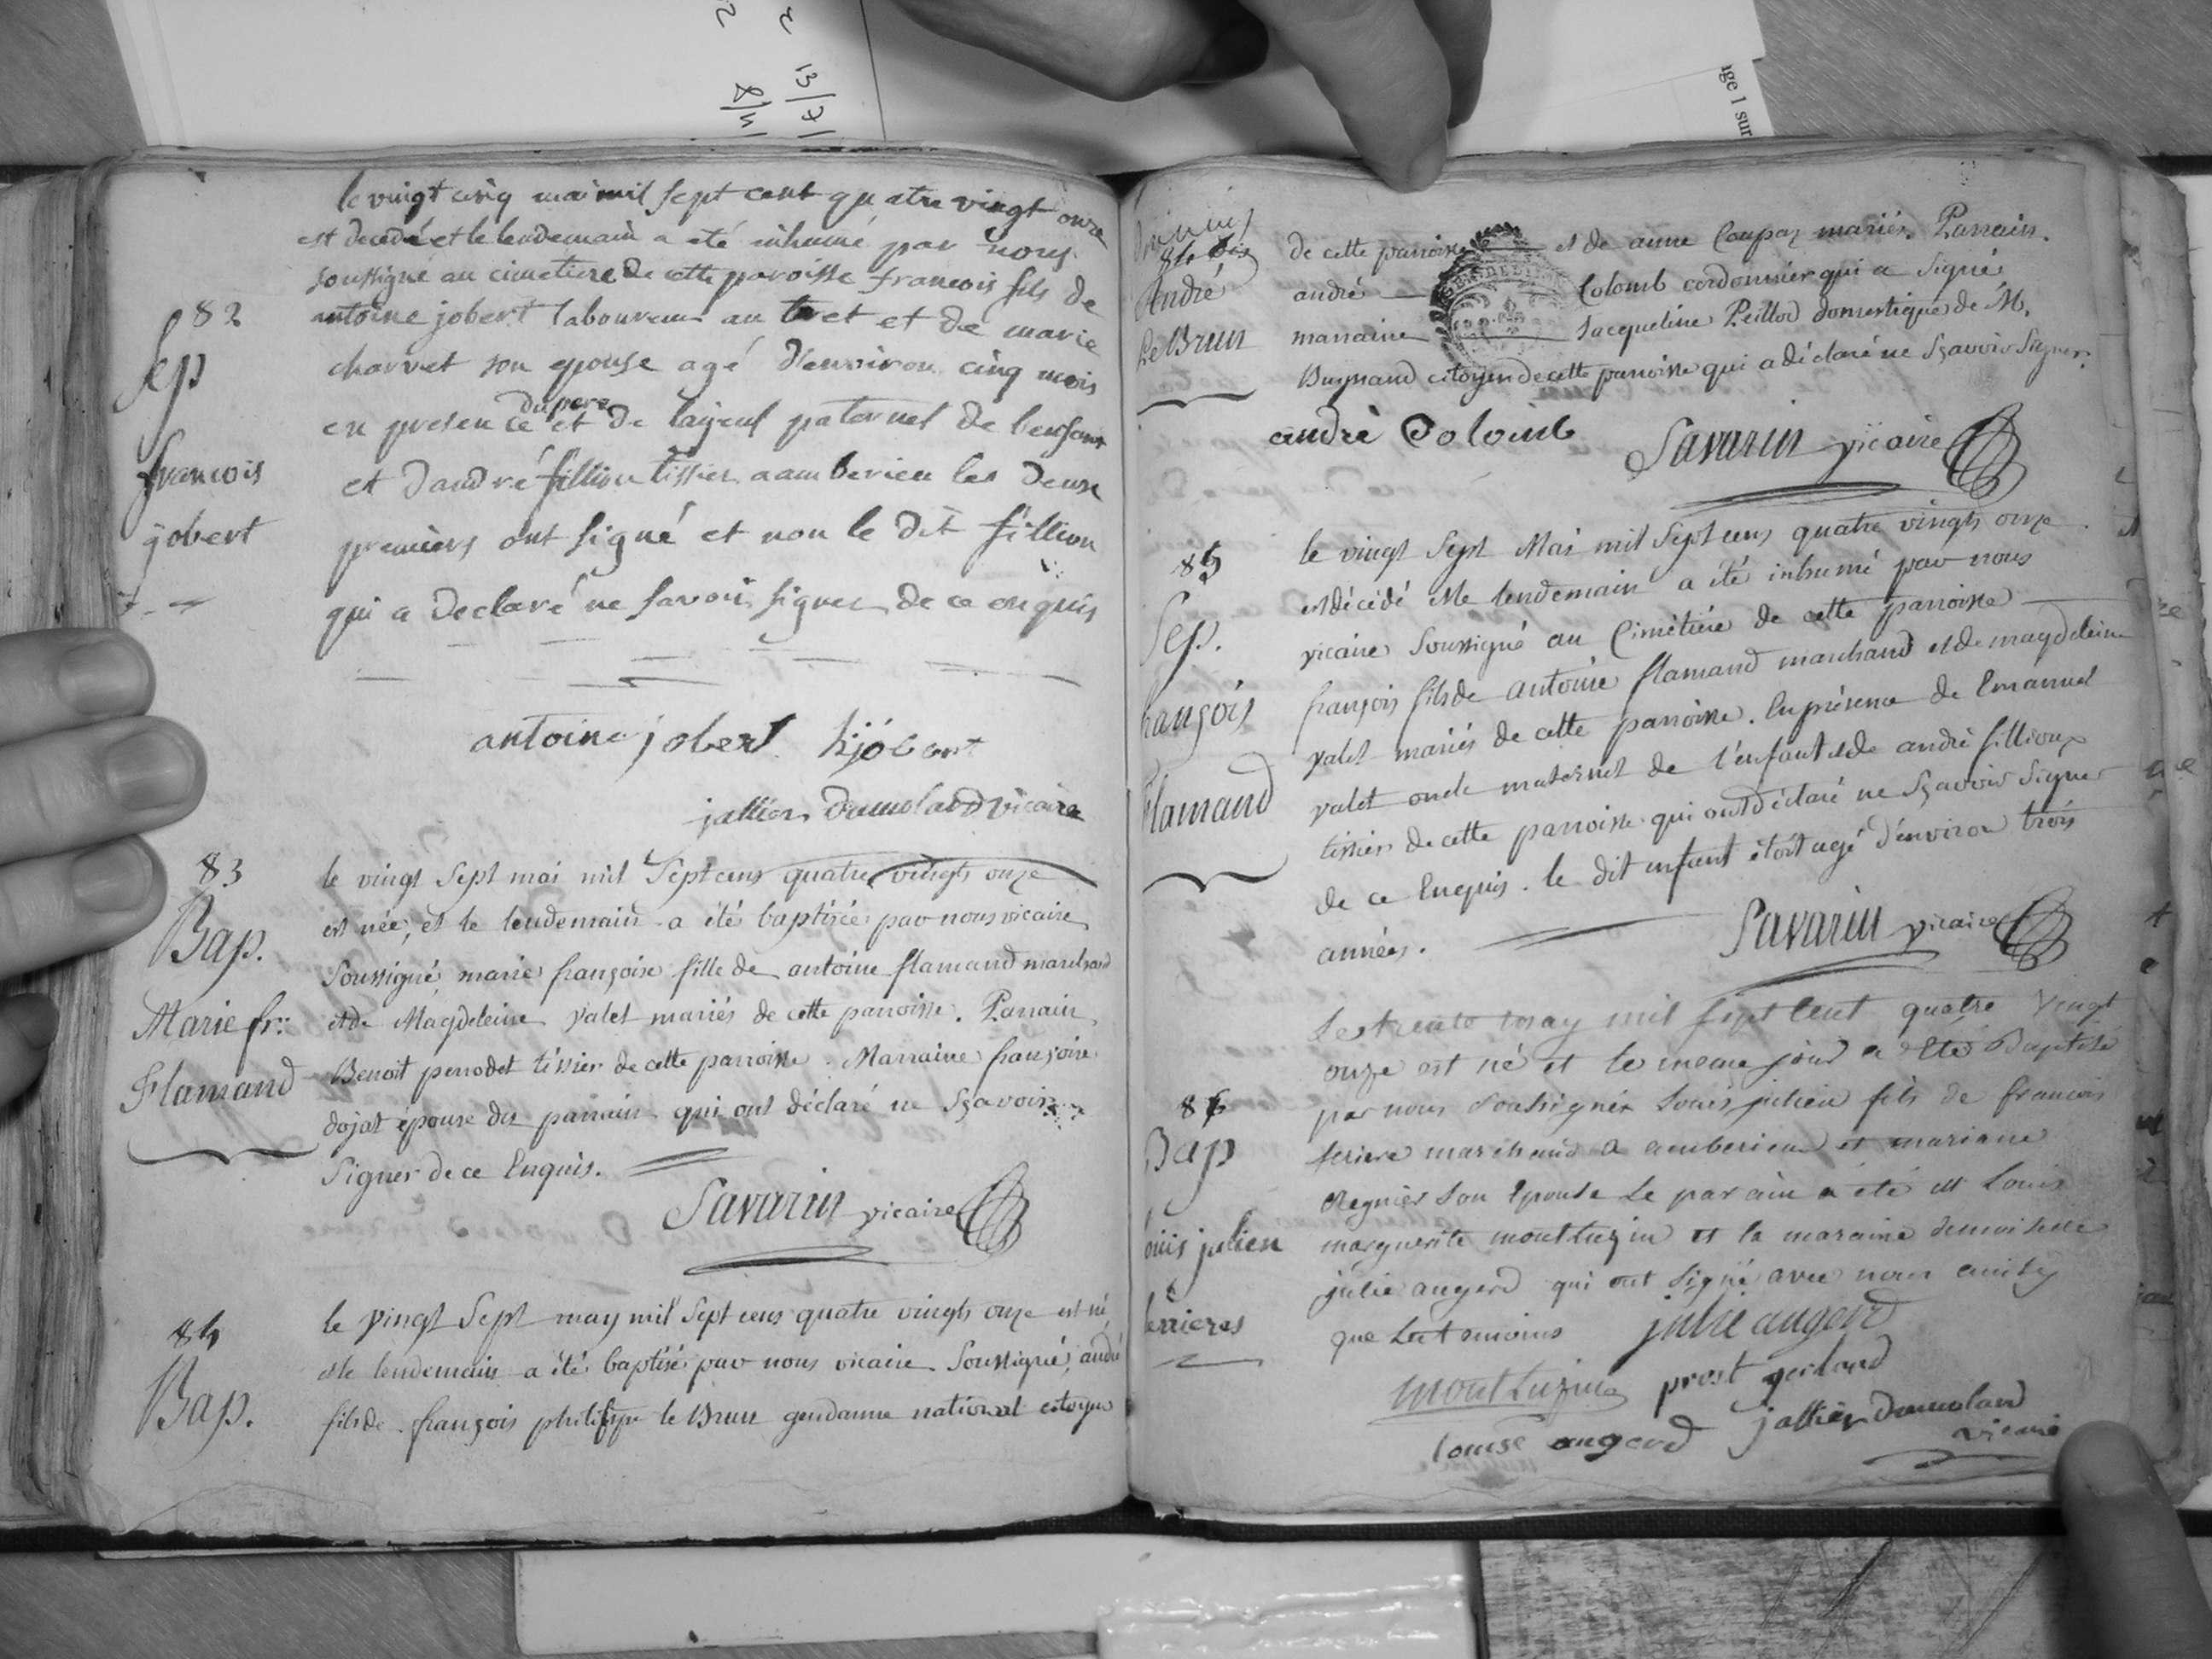 82
Sep
francois
jobert
le vingt cinq mai mil sept cent quatre vingt onze
est decedé et le lendemain a été inhumé par nous
soussigné au cimetiere de cette paroisse francois fils de
antoine jobert laboureur au tret et de marie
charvet son epouse agé d'environ cinq mois
en presence du pere et de layeul paternel de lenfant
et dandré fillion tissier a amberieu les deux
premiers ont signé et non le dit fillion
qui a declaré ne savoir signer de ce enquis
antoine jobert hjobert
jallier dumolard vicaire
83
Bap.
Marie fr:
Flamand
le vingt sept mai mil sept cens quatre vingts onze
est née, et le lendemain a été baptisée par nous vicaire
soussigné, marie françoise fille de antoine flamand marchand
et de Magdeleine valet mariés de cette parroisse. Parrain
Benoit perrodet tissier de cette parroisse. Marraine françoise
dojat épouse du parrain qui ont déclaré ne sçavoir
signer de ce Enquis.
Savarin vicaire
84
Bap.
le vingt sept may mil sept cens quatre vingts onze est né
et le lendemain a été baptisé par nous vicaire soussigné, andré
fils de françois philippe le Brun gendarme national citoyen
84 bis
André
Le Brun
de cette parroisse et de anne Coupaz mariés. Parrain.
andré Colomb cordonnier qui a signé
marraine Jacqueline Peillod domestique de M.
Buynand citoyen de cette parroisse qui a déclaré ne sçavoir signer.
andrè Colomb
Savarin vicaire
85
Sep.
françois
Flamand
le vingt sept Mai mil sept cens quatre vingts onze
est décédé et le lendemain a été inhumé par nous
vicaire soussigné au Cimétiere de cette parroisse
françois fils de antoine flamand marchand et de magdeleine
valet mariés de cette parroisse. En présence de Emanuel
valet oncle maternel de l'enfant et de andré fillioux
tissier de cette parroisse qui ont déclaré ne sçavoir signer
de ce Enquis. le dit enfant étoit agé d'environ trois
années.
Savarin vicaire
86
Bap
ouis julien
ferrieres
Le trente may mil sept cent quatre vingt
onze est né et le meme jour a été Baptisé
par nous soussigner Louis julien fils de francois
feriere marchand a amberieu et mariane
Regnier son Epouse Le parain a été Louis
marguerite montluzin et la maraine demoiselle
julie augerd qui ont signé avec nous ainsy
que Les temoins julie augerd
montluzin prost
louise augerd jallier dumolard
vicaire
13/7